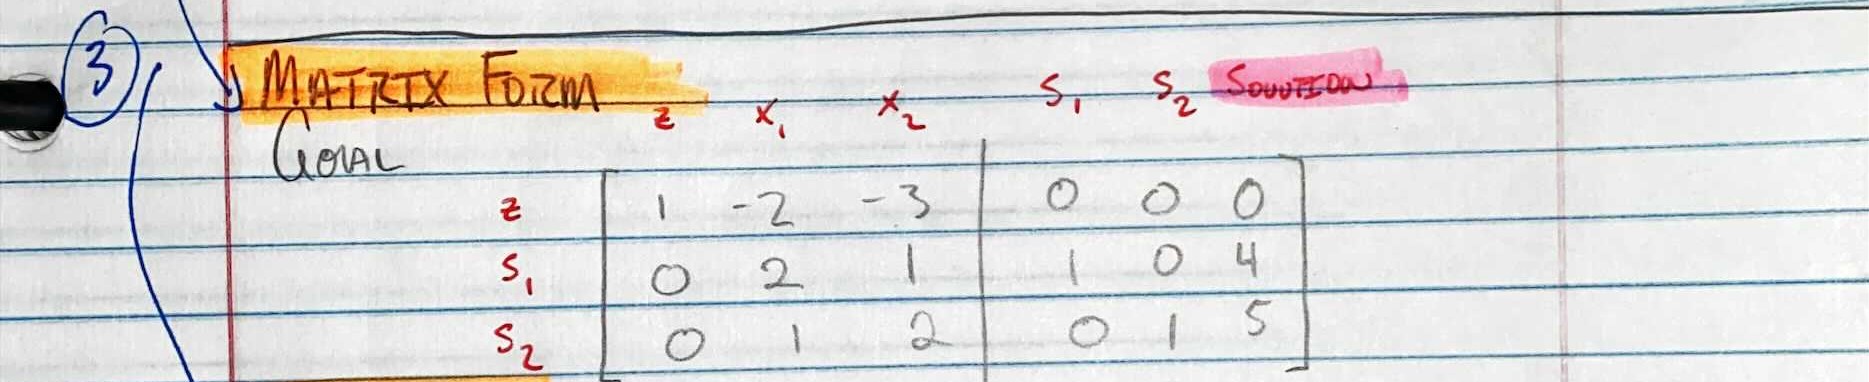 3 MATRIX FORM
z x₁ x₂ s₁ s₂ SOLUTION
GOAL
z 1 -2 -3 0 0 0
s₁ 0 2 1 1 0 4
s₂ 0 1 2 0 1 5